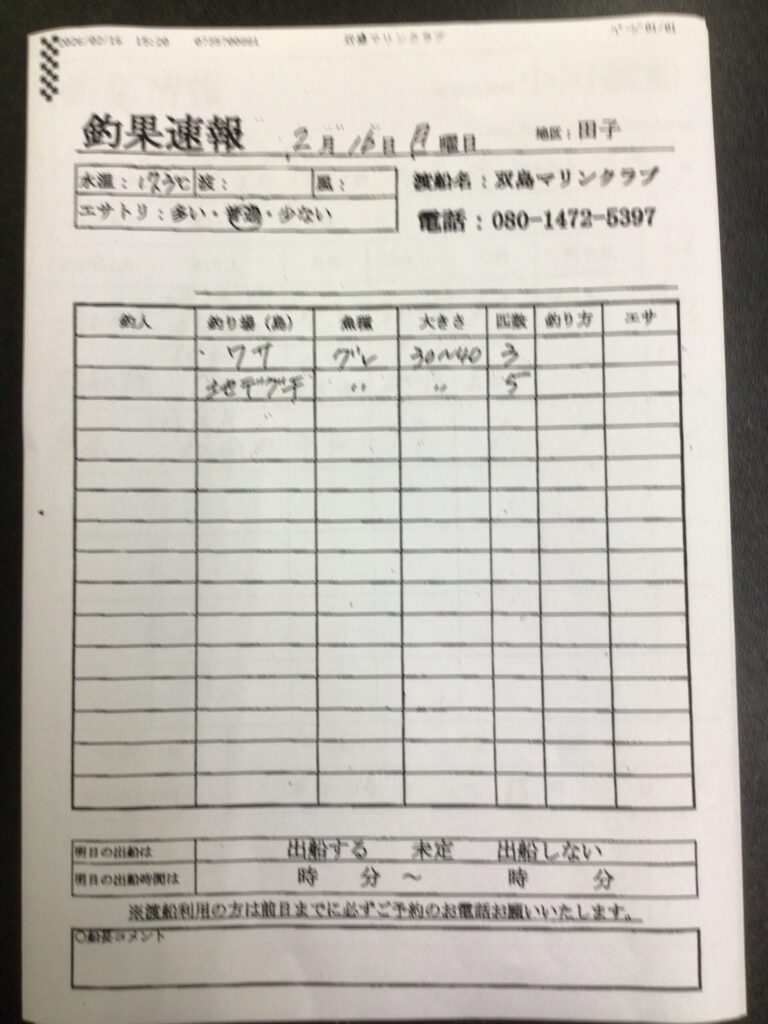 2026/02/16 15:20 0735700661 双島マリンクラブ ページ 01/01
釣果速報 2月16日 月曜日 地区：田子
水温：17.3℃ 波： 風： 渡船名：双島マリンクラブ
エサトリ：多い・普通・少ない 電話：080-1472-5397
釣人 釣り場（島） 魚種 大きさ 匹数 釣り方 エサ
ワサ グレ 30〜40 3
地デグチ 〃 〃 5
明日の出船は 出船する 未定 出船しない
明日の出船時間は 時 分 〜 時 分
※渡船利用の方は前日までに必ずご予約のお電話お願いいたします。
○船長コメント